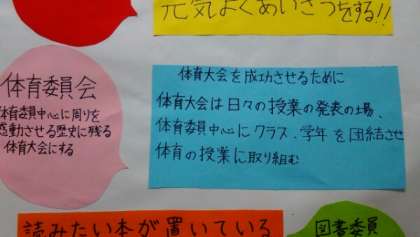 元気よくあいさつをする!!
体育委員会
体育委員中心に周りを
感動させる歴史に残る
体育大会にする
体育大会を成功させるために
体育大会は日々の授業の発表の場、
体育委員中心にクラス、学年を団結させ
体育の授業に取り組む
読みたい本が置いている
図書委員